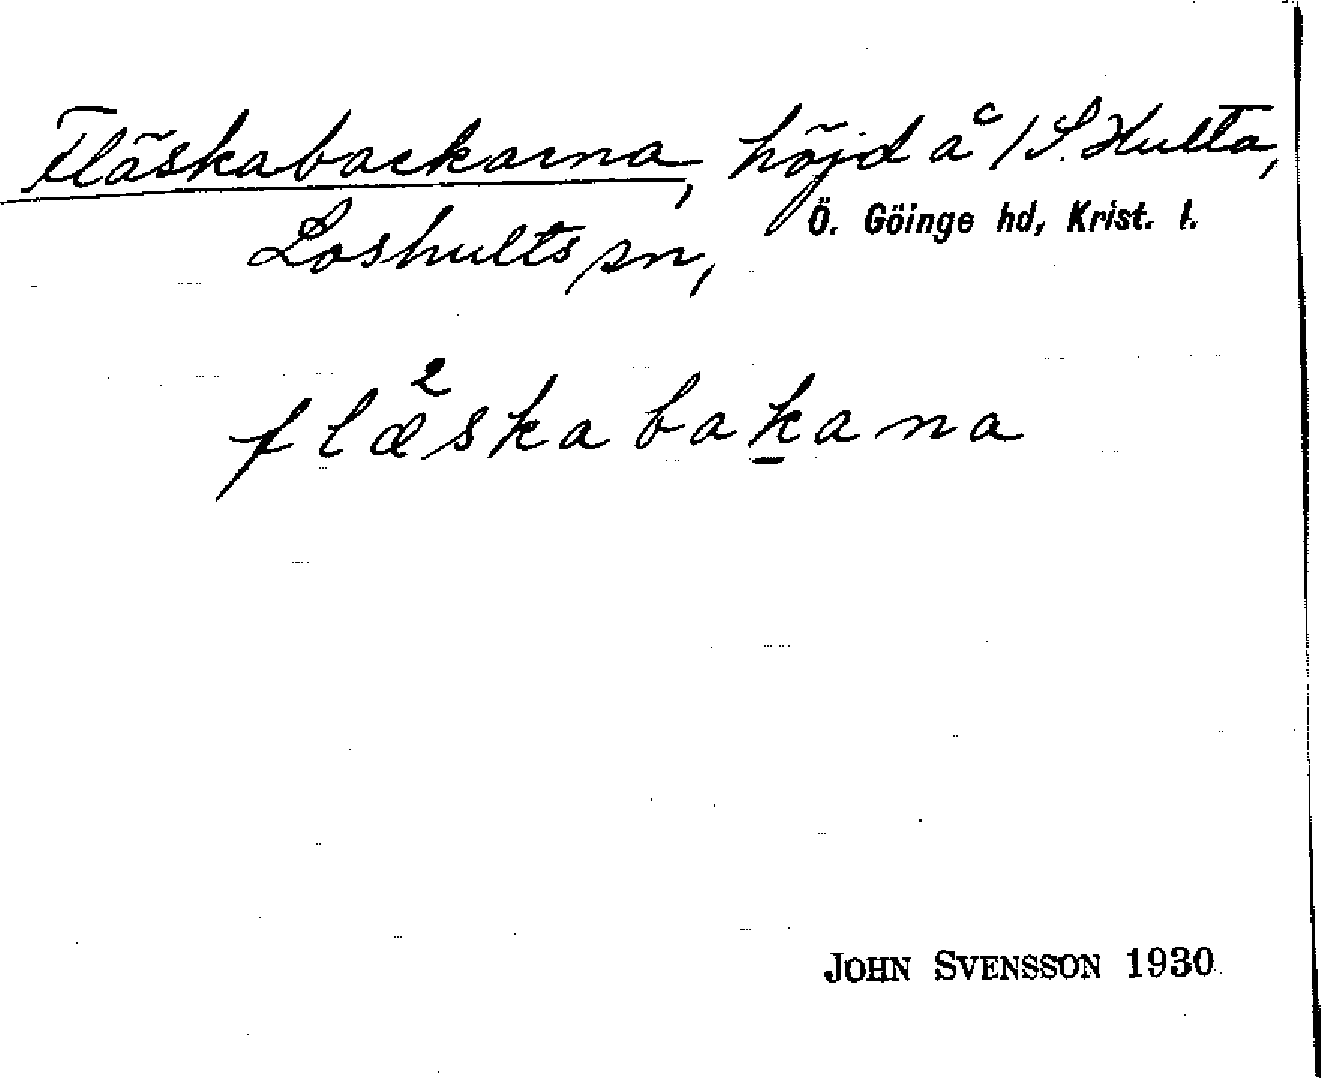 Fläskabackarna, höjd å 1 S. Hulta,
Loshults sn, Ö. Göinge hd, Krist. l.
flæ2skabakana
JOHN SVENSSON 1930